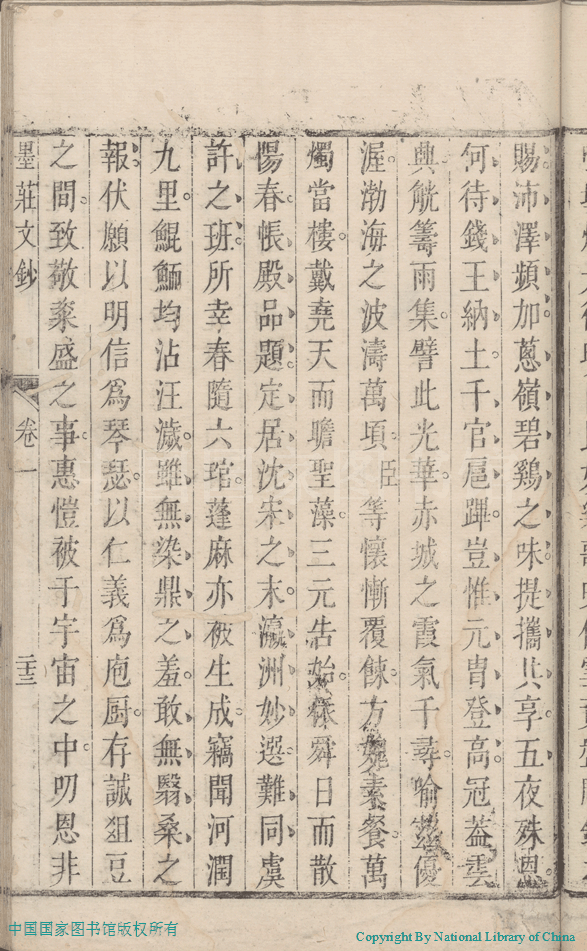 賜沛澤頻加蔥嶺碧鷄之味提攜共享五夜殊恩
何待錢王納土千官扈蹕豈惟元胄登高冠葢雲
興觥籌雨集譬此光華赤城之霞氣千尋喻優
渥渤海之波濤萬頃臣等懷慚覆餗方素餐萬
燭當樓戴堯天而瞻聖藻三元告始舜日而散
陽春帳殿品題定居沈宋之末瀛洲妙選難同虞
許之班所幸春隨六琯蓬麻亦被生成竊聞河潤
九里鯤鮞均沾汪濊雖無染鼎之羞敢無翳桑之
報伏願以明信爲琴瑟以仁義爲庖厨存誠俎豆
之間致敬粢盛之事惠愷被于宇宙之中叨恩非
墨莊文鈔 卷一 二十三
中国国家图书馆版权所有
Copyright By National Library of China